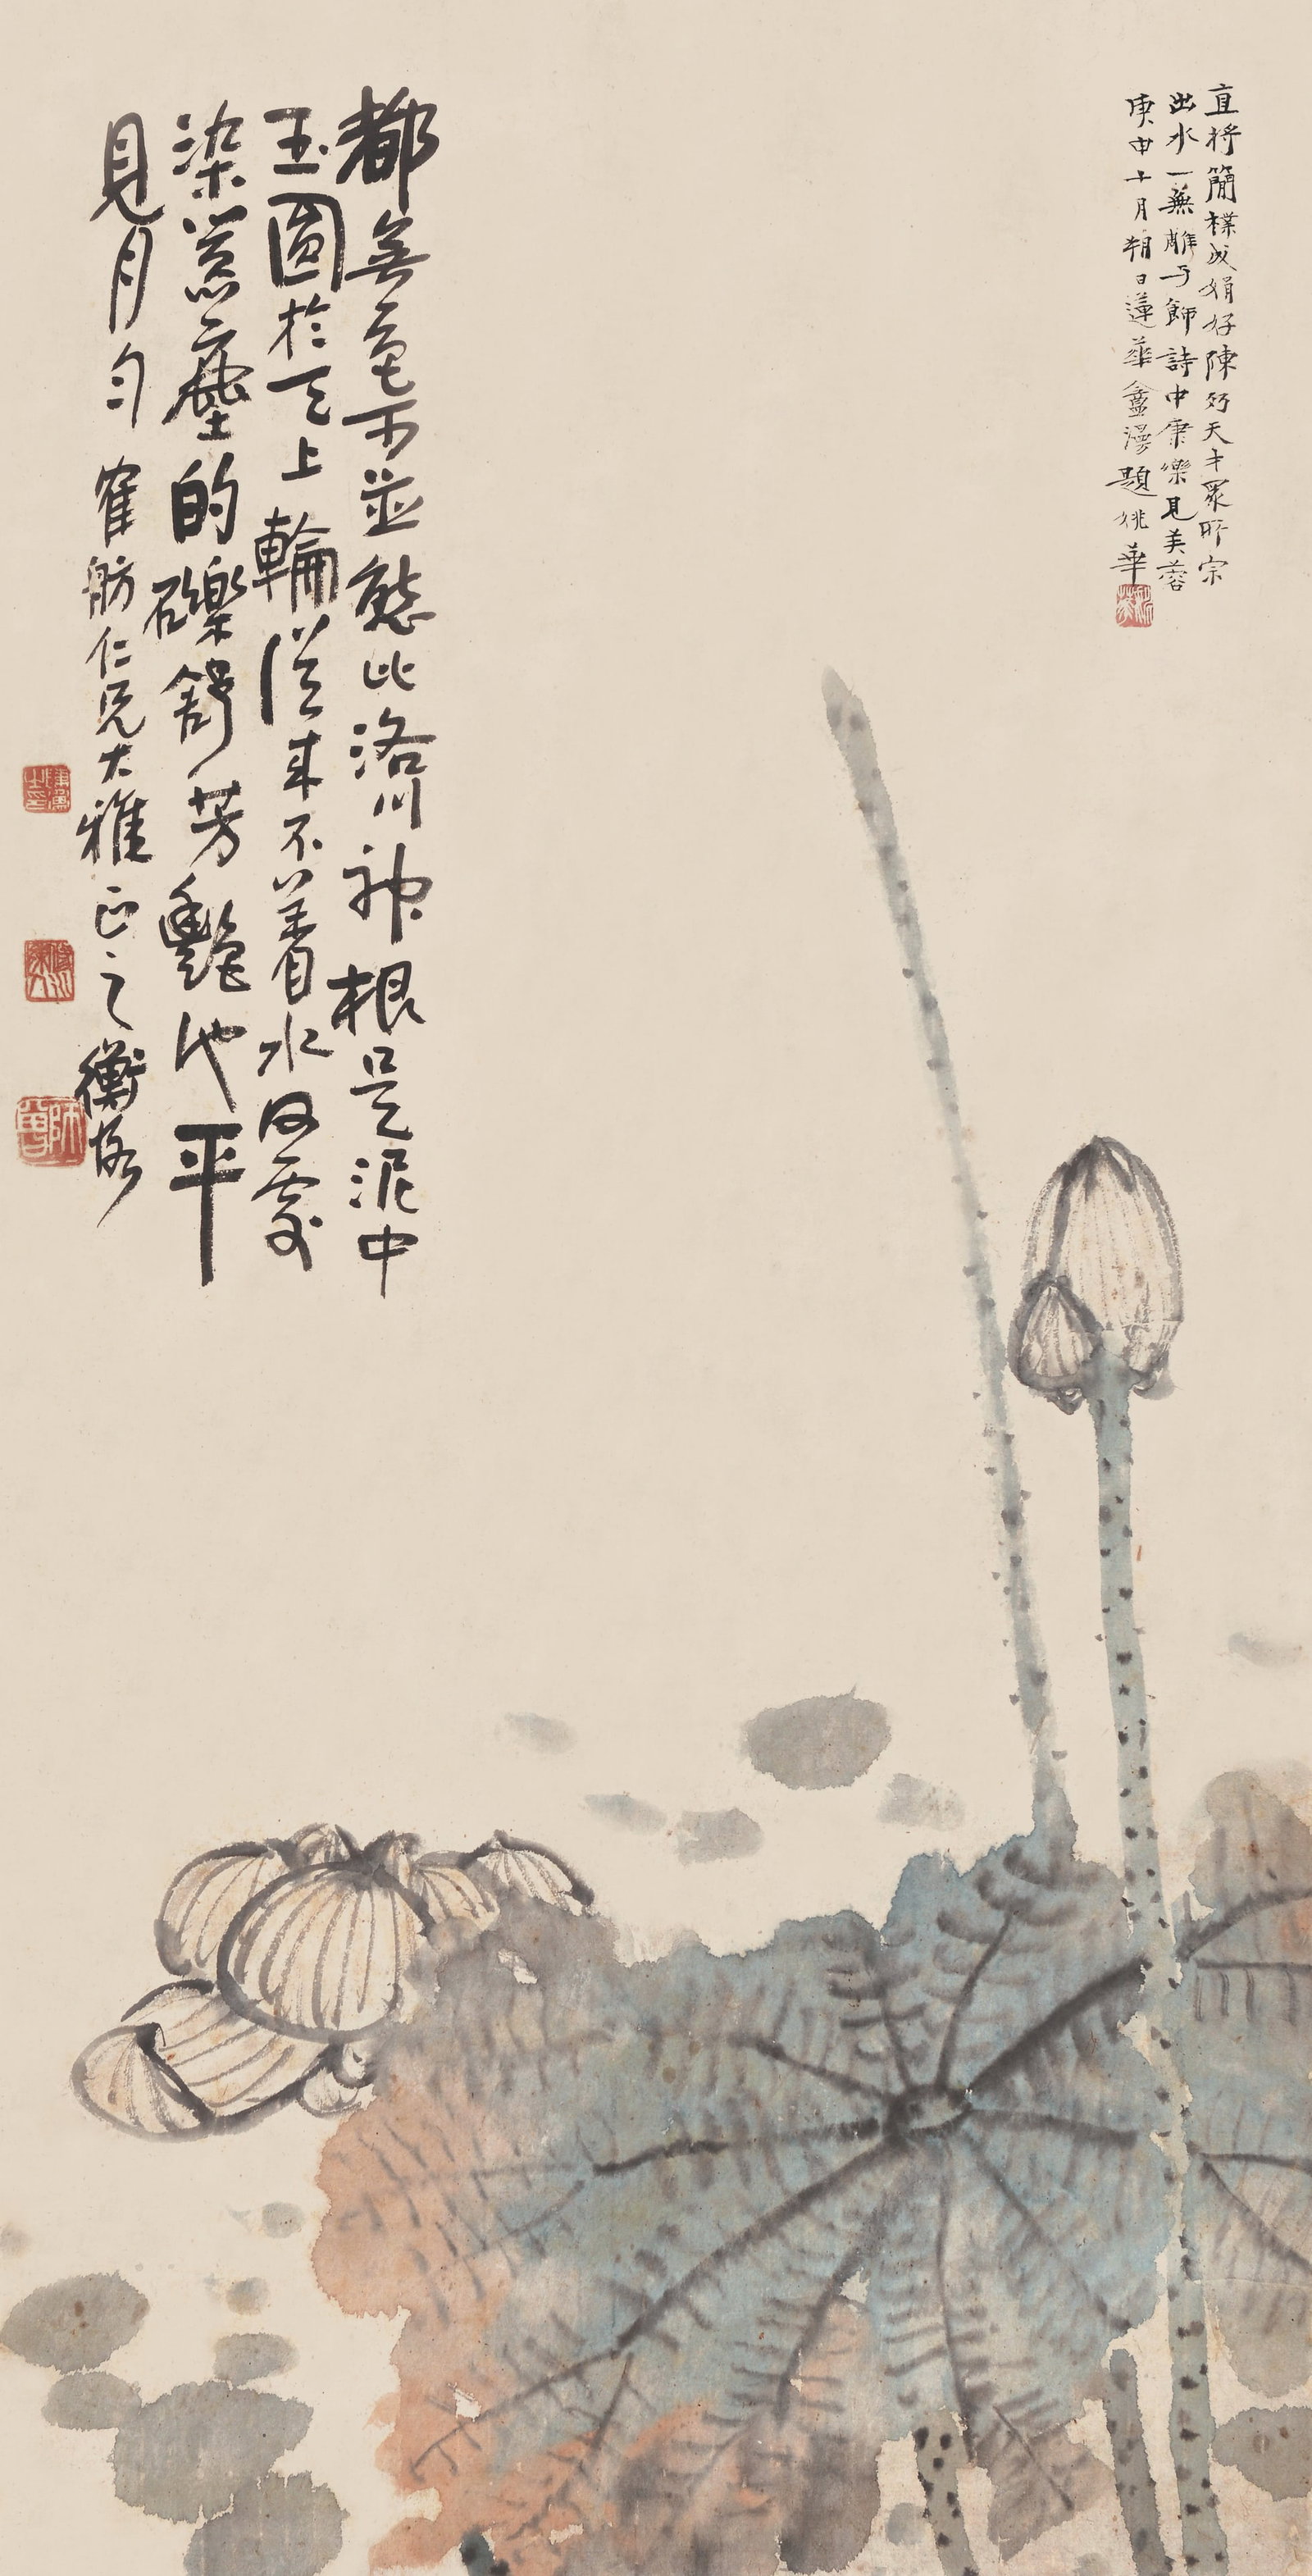 直將簡樸成娟好陳朽天才眾所宗
出水一蕪離与飾詩中康樂見芙蓉
庚申十月朔日蓮華盦漫題姚華
都無色可並態比洛川神根是泥中
玉圓於天上輪從來不著水何處
染荒塵的礫舒芳艷池平
見月匀 寉舫仁兄大雅正之衡恪